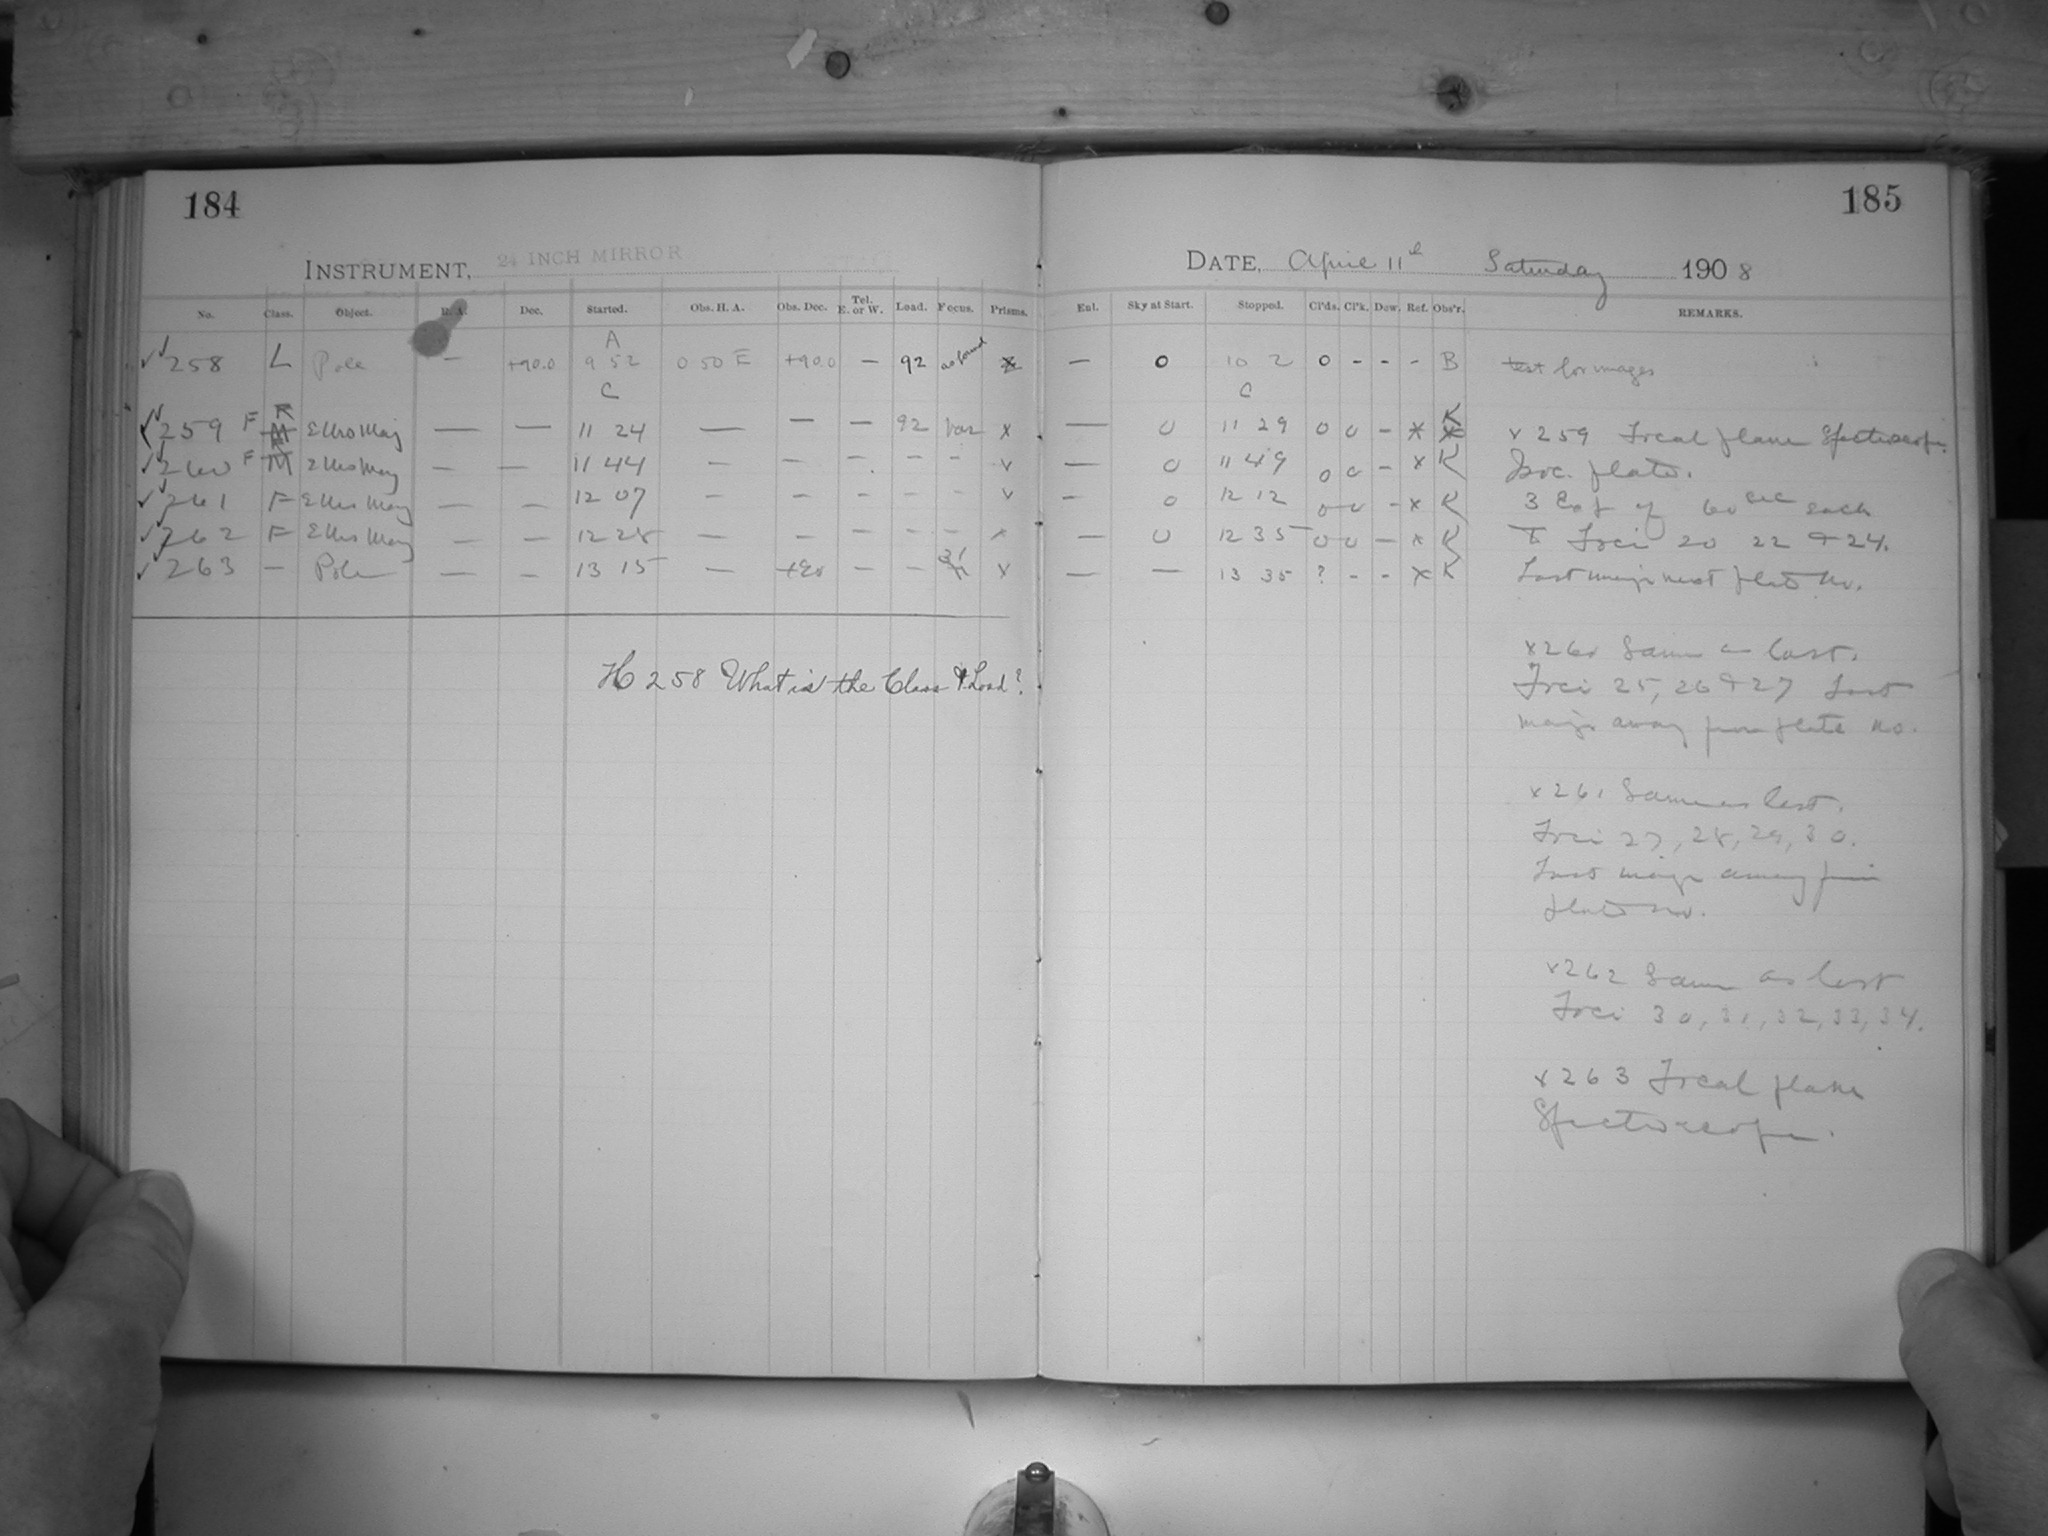 184
INSTRUMENT, 24 INCH MIRROR
No. Class. Object. R. A. Dec. Started. Obs. H. A. Obs. Dec. Tel. E. or W. Load. Focus. Prisms.
A
258 L Pole — +90.0 9 52 0 50 E +90.0 — 92 as found x
C
259 F 11 24 — — 92 x
260 F M — — 11 44 — — — — — x
261 F — — 12 07 — — — — — x
262 F — — 12 28 — — — — — x
263 — Pole — — 13 15 — +90 — — x
H 258 What is the Class & Load?
185
DATE, April 11th Saturday 1908
Enl. Sky at Start. Stopped. Cl'ds. Cl'k. Dew. Ref. Obs'r. REMARKS.
— 0 10 2 0 - - - B test for images
C
K
— 0 11 29 0 0 - x x 259 Focal plane Spectroscope.
— 0 11 49 0 0 - x K Iso. plate.
- 0 12 12 0 0 - x K 3 Exp of 60 sec each
— 0 12 35 0 0 - x K Foci 20 22 & 24.
— — 13 35 ? - - x K Last image next plate No.
x 260 Same as last.
Foci 25, 26 & 27 Last
image away from plate No.
x 261 Same as last.
Foci 27, 28, 29, 30.
Last image away from
plate No.
x 262 Same as last
Foci 30, 31, 32, 33, 34.
x 263 Focal plane
Spectroscope.